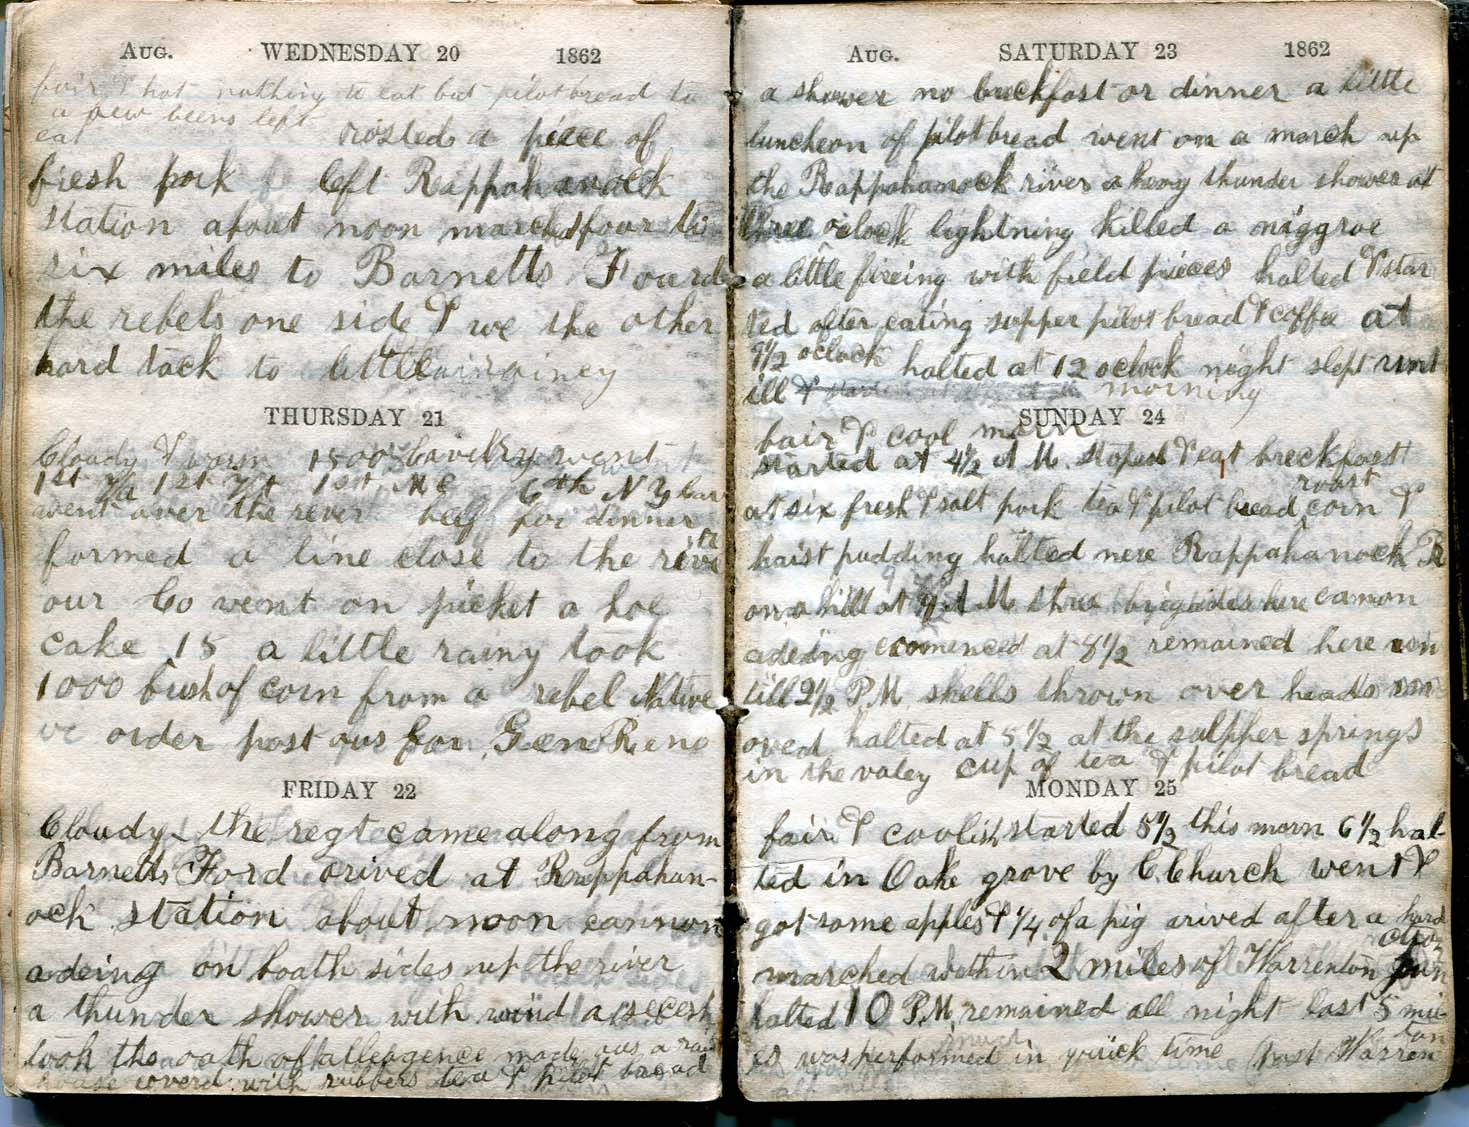 Aug. WEDNESDAY 20 1862
fair & hot nothing to eat but pilot bread to
a few beens left
eat rosted a piece of
fresh pork left Rappahanock
station about noon marched four to
six miles to Barnetts Foard
the rebels one side & we the other
hard tack to little
THURSDAY 21
Cloudy & warm 1500 Cavelry went
1st Va 1st 1st Me 6th N Y Cav
went over the rever beef for dinner
formed a line close to the river
our Co went on picket a hoe
cake 15 a little rainy took
1000 bush of corn from a rebel Native
order post Gen Reno
FRIDAY 22
Cloudy the regt came along from
Barnetts Ford arived at Rappahan-
ock station about noon cannon
adeing on boath sides up the river
a thunder shower with wind a secesh
took the oath of alleagence made us a
house coverd with rubbers tea & pilot bread
Aug. SATURDAY 23 1862
a shower no breckfast or dinner a little
luncheon of pilot bread went on a march up
the Rappahanock river a heavy thunder shower at
three oclock lightning killed a niggroe
a little fireing with field pieces halted & star
ted after eating supper pilot bread & coffee at
9½ oclock halted at 12 oclock night slept unt
ill & morning
SUNDAY 24
fair & cool morn
started at 4½ A M. stoped & eat breckfast
at six fresh & salt pork tea & pilot bread roast corn &
haist pudding halted nere Rappahanock R
on a hill at 9 A M three brigaides here canon
adeing comenced at 8½ remained here un
till 2½ P.M. shells thrown over heads m
oved halted at 5½ at the sulpher springs
in the valey cup of tea & pilot bread
MONDAY 25
fair & coolish started 5½ this morn 6½ hal-
ted in Oake grove by C. Church went &
got some apples & ¼ of a pig arived after a hard
marched within 2 miles of Warrenton
halted 10 P.M. remained all night last 5 mi
es was performed in quick time past Warren
ton